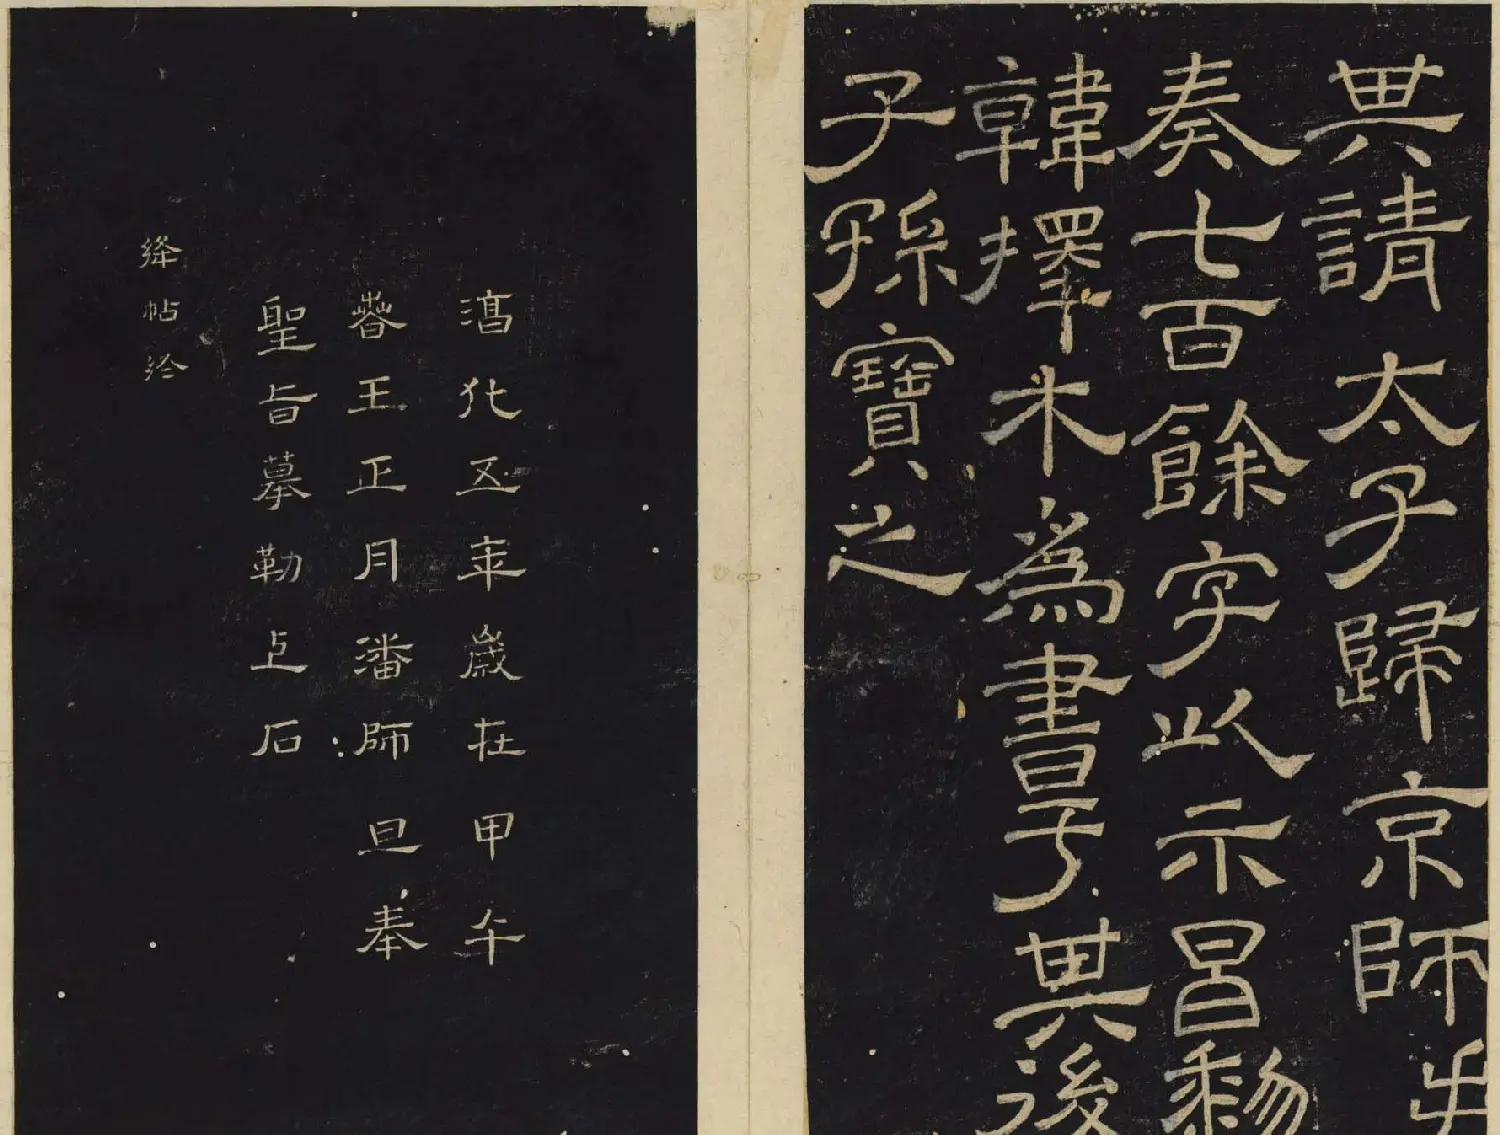 其請太子歸京師
奏七百餘字以示昌黎
韓擇木為書于其後
子孫寶之
淳化五年歲在甲午
春王正月潘師旦奉
聖旨摹勒上石
絳帖終